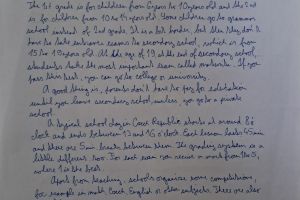 The 1st grade is for children from 6 years to 10 years old and the 2nd
is for children from 10 to 14 years old. Some children go to grammar
school instead of 2nd grade. It is a bit harder, but then they don't
have to take entrance exams to secondary school, which is from
15 to 19 years old. At the age of 19, at the end of secondary school,
students take the most important exam called maturita. If you
pass this test, you can go to college or university.
A good thing is, parents don't have to pay for education
until you leave secondary school, unless you go to a private
school.
A typical school day in Czech Republic starts at around 8 o'
clock and ends between 13 and 16 o'clock. Each lesson lasts 45 min
and there are 5 min breaks between them. The grading system is a
little different too. For each exam you receive a mark from 1 to 5,
where 1 is the best.
Apart from teaching, schools organize some competitions,
for example in math, Czech, English or other subjects. There are also